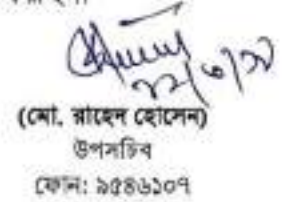 (মো. রাহেদ হোসেন)
উপসচিব
ফোন: ৯৫৪৬১০৭